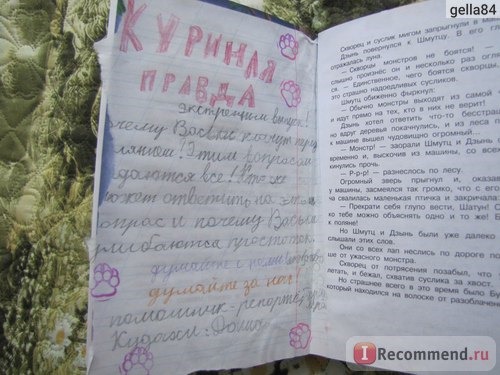 gella84
КУРИНАЯ
ПРАВДА
экстренный выпуск!
очему Васьки
! Этим вопросом
даются все! Кто же
ожет ответить на это
прос и почему Васьки
думайте с нами
думайте за нас!
помощник-репортер
Скворец и суслик мигом запрыгнули в Ма
Дзынь повернулся к Шмутцу. В его гл
отражалась луна.
– Скворцы монстров не боятся! –
слышно произнёс он и несколько раз огля
ся. – Единственное, чего боятся скворцы,
это страшно надоедливых сусликов.
Шмутц обиженно фыркнул.
– Обычно монстры выходят из самой
и идут прямо на тех, кто в них не верит!
Дзынь хотел ответить что-то бесстра
но вдруг деревья покачнулись, и из леса п
к машине вышел чудовищно огромный...
– Монстр! – заорали Шмутц и Дзынь
временно и, выскочив из машины, со всех
кину.
– Р-р-р! – разнеслось по лесу.
Огромный зверь прыгнул и, оказав
у машины, засмеялся так громко, с его
ча свалилась маленькая птичка и закричала:
– Прекрати себя глупо вести, Шатун! Ск
ко тебе можно объяснять одно и то же! В
е поляне!
Но Шмутц и Дзынь были уже далеко
слышали этих слов.
Они со всех лап неслись по дороге по
ше от ужасного монстра.
Скворец от потрясения позабыл, что
летать, и бежал, схватив суслика за хвост.
Но страшнее всего в это время было Бу
который находился на волоске от разоблачен
IRecommend.ru